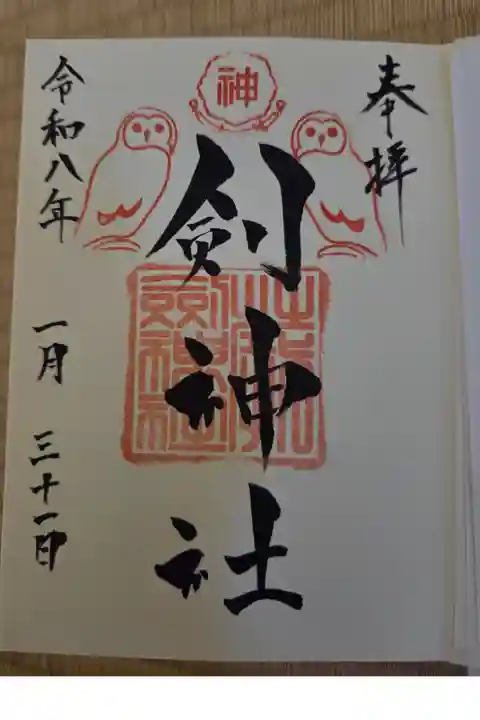 奉拝
神
劍神社
令和八年
一月 三十一日